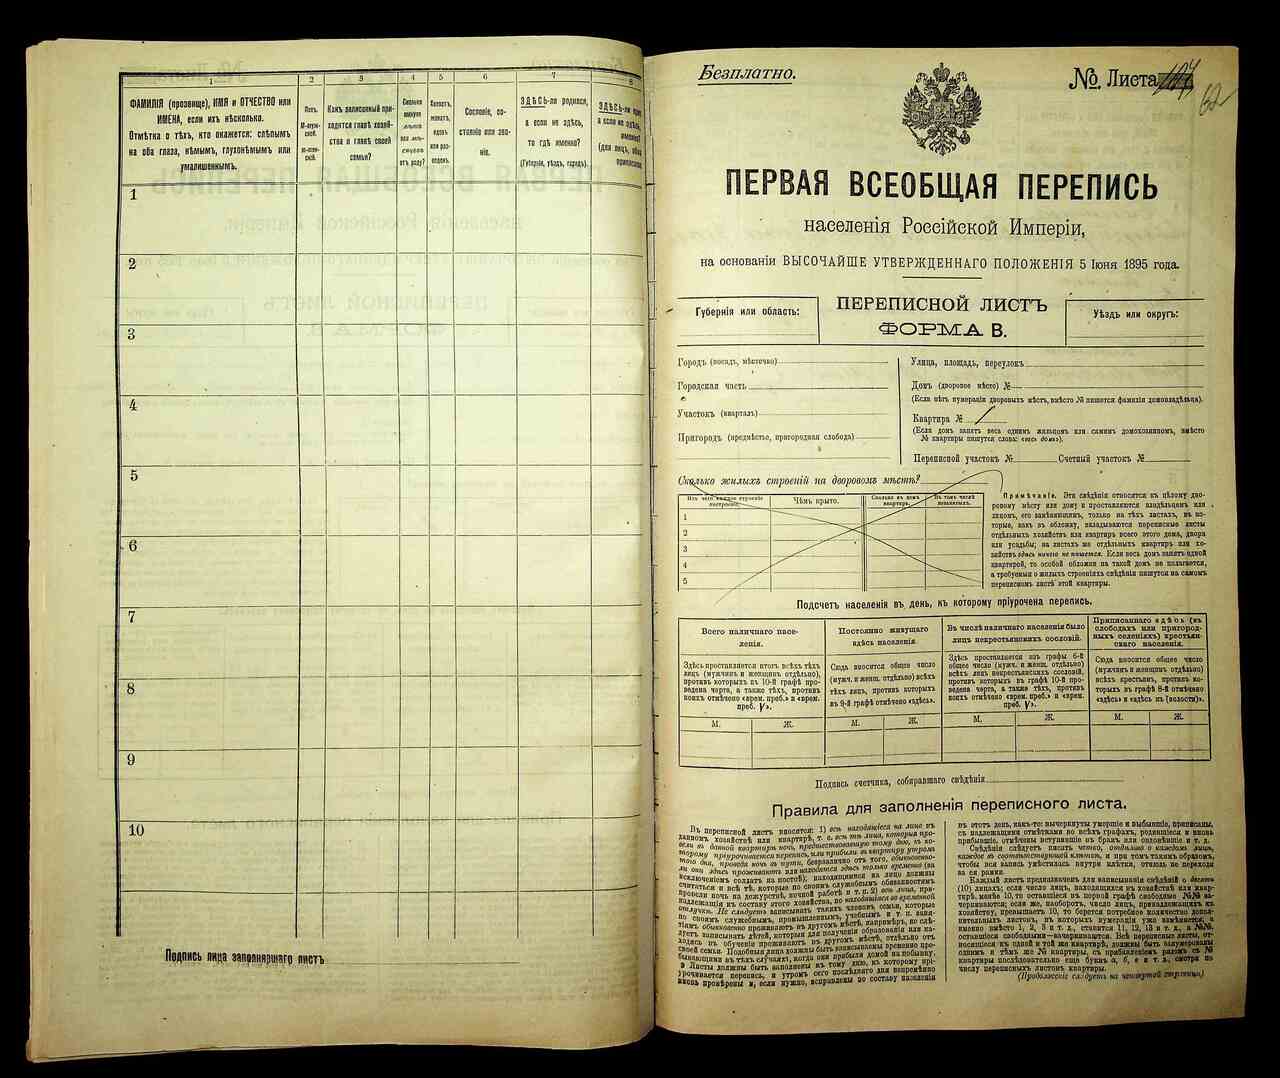 1 2 3 4 5 6 7 8
ФАМИЛІЯ (прозвище), ИМЯ и ОТЧЕСТВО или
ИМЕНА, если ихъ нѣсколько.
Отмѣтка о тѣхъ, кто окажется: слѣпымъ
на оба глаза, нѣмымъ, глухонѣмымъ или
умалишеннымъ.
Полъ.
М-мужской.
Ж-женской.
Какъ записанный при-
ходится главѣ хозяй-
ства и главѣ своей
семьи?
Сколько
минуло
лѣтъ
или мѣ-
сяцевъ
отъ роду?
Холостъ,
женатъ,
вдовъ
или раз-
веденъ.
Сословіе, со-
стояніе или зва-
ніе.
ЗДѢСЬ-ли родился,
а если не здѣсь,
то гдѣ именно?
(Губернія, уѣздъ, городъ).
ЗДѢСЬ-ли
а если не здѣсь,
1
2
3
4
5
6
7
8
9
10
Подпись лица заполнявшаго листъ
Безплатно.
№ Листа
62
ПЕРВАЯ ВСЕОБЩАЯ ПЕРЕПИСЬ
населенія Россійской Имперіи,
на основаніи ВЫСОЧАЙШЕ УТВЕРЖДЕННАГО ПОЛОЖЕНІЯ 5 Іюня 1895 года.
Губернія или область:
ПЕРЕПИСНОЙ ЛИСТЪ
ФОРМА В.
Уѣздъ или округъ:
Городъ (посадъ, мѣстечко)
Городская часть
Участокъ (кварталъ)
Пригородъ (предмѣстье, пригородная слобода)
Улица, площадь, переулокъ
Домъ (дворовое мѣсто) №
(Если нѣтъ нумераціи дворовыхъ мѣстъ, вмѣсто № пишется фамилія домовладѣльца).
Квартира №
(Если домъ занятъ весь однимъ жильцомъ или самимъ домохозяиномъ, вмѣсто
№ квартиры пишутся слова: «весь домъ»).
Переписной участокъ № Счетный участокъ №
Сколько жилыхъ строеній на дворовомъ мѣстѣ?
Изъ чего каждое строеніе
построено.
Чѣмъ крыто.
Сколько въ домѣ
квартиръ.
Въ томъ числѣ
незанятыхъ.
1
2
3
4
5
Примѣчаніе. Эти свѣдѣнія относятся къ цѣлому дво-
ровому мѣсту или дому и проставляются владѣльцемъ или
лицомъ, его замѣняющимъ, только на тѣхъ листахъ, въ ко-
торые, какъ въ обложку, вкладываются переписные листы
отдѣльныхъ хозяйствъ или квартиръ всего этого дома, двора
или усадьбы; на листахъ же отдѣльныхъ квартиръ или хо-
зяйствъ здѣсь ничего не пишется. Если весь домъ занятъ одной
квартирой, то особой обложки на такой домъ не полагается,
а требуемыя о жилыхъ строеніяхъ свѣдѣнія пишутся на самомъ
переписномъ листѣ этой квартиры.
Подсчетъ населенія въ день, къ которому пріурочена перепись.
Всего наличнаго насе-
ленія.
Постоянно живущаго
здѣсь населенія.
Въ числѣ наличнаго населенія было
лицъ некрестьянскихъ сословій.
Приписаннаго здѣсь (въ
слободахъ или пригород-
ныхъ селеніяхъ) крестьян-
скаго населенія.
Здѣсь проставляется итогъ всѣхъ тѣхъ
лицъ (мужчинъ и женщинъ отдѣльно),
противъ которыхъ въ 10-й графѣ про-
ведена черта, а также тѣхъ, противъ
коихъ отмѣчено «врем. преб.» и «врем.
преб. V».
Сюда вносится общее число
(мужч. и женщ. отдѣльно) всѣхъ
тѣхъ лицъ, противъ которыхъ
въ 9-й графѣ отмѣчено «здѣсь».
Здѣсь проставляется изъ графы 6-й
общее число (мужч. и женщ. отдѣльно)
всѣхъ лицъ некрестьянскихъ сословій,
противъ которыхъ въ графѣ 10-й про-
ведена черта, а также тѣхъ, противъ
коихъ отмѣчено «врем. преб.» и «врем.
преб. V».
Сюда вносится общее число
(мужчинъ и женщинъ отдѣльно)
всѣхъ крестьянъ, противъ ко-
торыхъ въ графѣ 8-й отмѣчено
«здѣсь» и «здѣсь къ (волости)».
М. Ж. М. Ж. М. Ж. М. Ж.
Подпись счетчика, собиравшаго свѣдѣнія
Правила для заполненія переписного листа.
Въ переписной листъ вносятся: 1) всѣ находящіеся на лицо въ
данномъ хозяйствѣ или квартирѣ, т. е. всѣ тѣ лица, которыя про-
вели въ данной квартирѣ ночь, предшествовавшую тому дню, къ ко-
торому пріурочивается перепись, или прибыли въ квартиру утромъ
этого дня, проведя ночь въ пути, безразлично отъ того, обыкновен-
но ли они здѣсь проживаютъ или находятся здѣсь только временно (за
исключеніемъ солдатъ на постоѣ); находящимися на лицо должны
считаться и всѣ тѣ, которые по своимъ служебнымъ обязанностямъ
провели ночь на дежурствѣ, ночной работѣ и т. п. 2) всѣ лица, при-
надлежащія къ составу этого хозяйства, но находящіяся во временной
отлучкѣ. Не слѣдуетъ записывать такихъ членовъ семьи, которые
по своимъ служебнымъ, промышленнымъ, учебнымъ и т. п. заня-
тіямъ обыкновенно проживаютъ въ другомъ мѣстѣ, напримѣръ, не слѣ-
дуетъ записывать дѣтей, которыя для полученія образованія или на-
ходясь въ обученіи проживаютъ въ другомъ мѣстѣ, отдѣльно отъ
своей семьи. Подобныя лица должны быть записываемы временно пре-
бывающими въ тѣхъ случаяхъ, когда они прибыли домой на побывку.
Листы должны быть заполнены къ тому дню, къ которому прі-
урочивается перепись, и утромъ сего послѣдняго дня непремѣнно
вновь провѣрены и, если нужно, исправлены по составу населенія
въ этотъ день, какъ-то: вычеркнуты умершіе и выбывшіе, приписаны,
съ надлежащими отмѣтками во всѣхъ графахъ, родившіеся и вновь
прибывшіе, отмѣчены вступившіе въ бракъ или овдовѣвшіе и т. д.
Свѣдѣнія слѣдуетъ писать четко, отдѣльно о каждомъ лицѣ,
каждое въ соотвѣтствующей клѣткѣ, и при томъ такимъ образомъ,
чтобы вся запись умѣстилась внутри клѣтки, отнюдь не переходя
за ея рамки.
Каждый листъ предназначенъ для записыванія свѣдѣній о десяти
(10) лицахъ; если число лицъ, находящихся въ хозяйствѣ или квар-
тирѣ, менѣе 10, то оставшіеся въ первой графѣ свободные №№ за-
черкиваются; если же, наоборотъ, число лицъ, принадлежащихъ къ
хозяйству, превышаетъ 10, то берется потребное количество допол-
нительныхъ листовъ, въ которыхъ нумерація уже измѣняется, а
именно вмѣсто 1, 2, 3 и т. д., ставится 11, 12, 13 и т. д., а №№,
оставшіеся свободными—зачеркиваются. Всѣ переписные листы, от-
носящіеся къ одной и той же квартирѣ, должны быть занумерованы
однимъ и тѣмъ же № квартиры, съ прибавленіемъ рядомъ съ №
квартиры послѣдовательно еще буквъ а, б, в и т. д., смотря по
числу переписныхъ листовъ квартиры.
(Продолженіе слѣдуетъ на четвертой страницѣ)